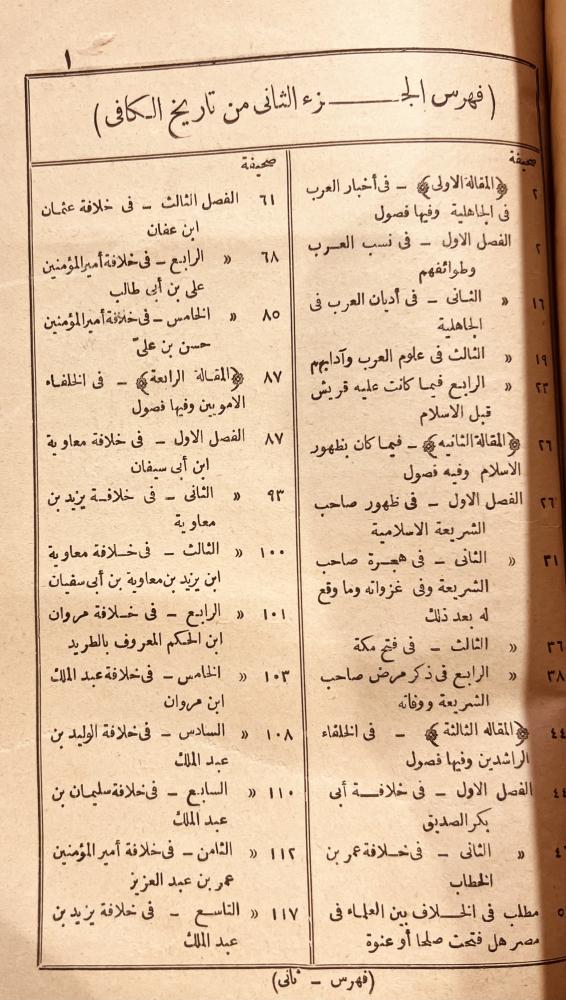 ١
(فهرس الجـــــزء الثانى من تاريخ الكافى)
صحيفة
٢ ﴿المقالة الاولى﴾ – فى أخبار العرب
فى الجاهلية وفيها فصول
٢ الفصل الاول – فى نسب العرب
وطوائفهم
١٦ « الثانى – فى أديان العرب فى
الجاهلية
١٩ « الثالث فى علوم العرب وآدابهم
٢٣ « الرابع فيما كانت عليه قريش
قبل الاسلام
٢٦ ﴿المقالة الثانيه﴾ – فيما كان بظهور
الاسلام وفيه فصول
٢٦ الفصل الاول – فى ظهور صاحب
الشريعة الاسلامية
٣١ « الثانى – فى هجرة صاحب
الشريعة وفى غزواته وما وقع
له بعد ذلك
٣٦ « الثالث – فى فتح مكة
٣٨ « الرابع فى ذكر مرض صاحب
الشريعة ووفاته
٤٤ ﴿المقاله الثالثة﴾ – فى الخلفاء
الراشدين وفيها فصول
٤٤ الفصل الاول – فى خلافة أبى
بكر الصديق
« الثانى – فى خلافة عمر بن
الخطاب
مطلب فى الخلاف بين العلماء فى
مصر هل فتحت صلحا أو عنوة
صحيفة
٦١ الفصل الثالث – فى خلافة عثمان
ابن عفان
٦٨ « الرابع – فى خلافة أمير المؤمنين
على بن أبى طالب
٨٥ « الخامس – فى خلافة أمير المؤمنين
حسن بن علىّ
٨٧ ﴿المقالة الرابعة﴾ – فى الخلفاء
الامويين وفيها فصول
٨٧ الفصل الاول – فى خلافة معاوية
ابن أبى سيفان
٩٣ « الثانى – فى خلافة يزيد بن
معاوية
١٠٠ « الثالث – فى خلافة معاوية
ابن يزيد بن معاوية بن أبى سفيان
١٠١ « الرابع – فى خلافة مروان
ابن الحكم المعروف بالطريد
١٠٣ « الخامس – فى خلافة عبد الملك
ابن مروان
١٠٨ « السادس – فى خلافة الوليد بن
عبد الملك
١١٠ « السابع – فى خلافة سليمان بن
عبد الملك
١١٢ « الثامن – فى خلافة أمير المؤمنين
عمر بن عبد العزيز
١١٧ « التاسع – فى خلافة يزيد بن
عبد الملك
(فهرس – ثانى)